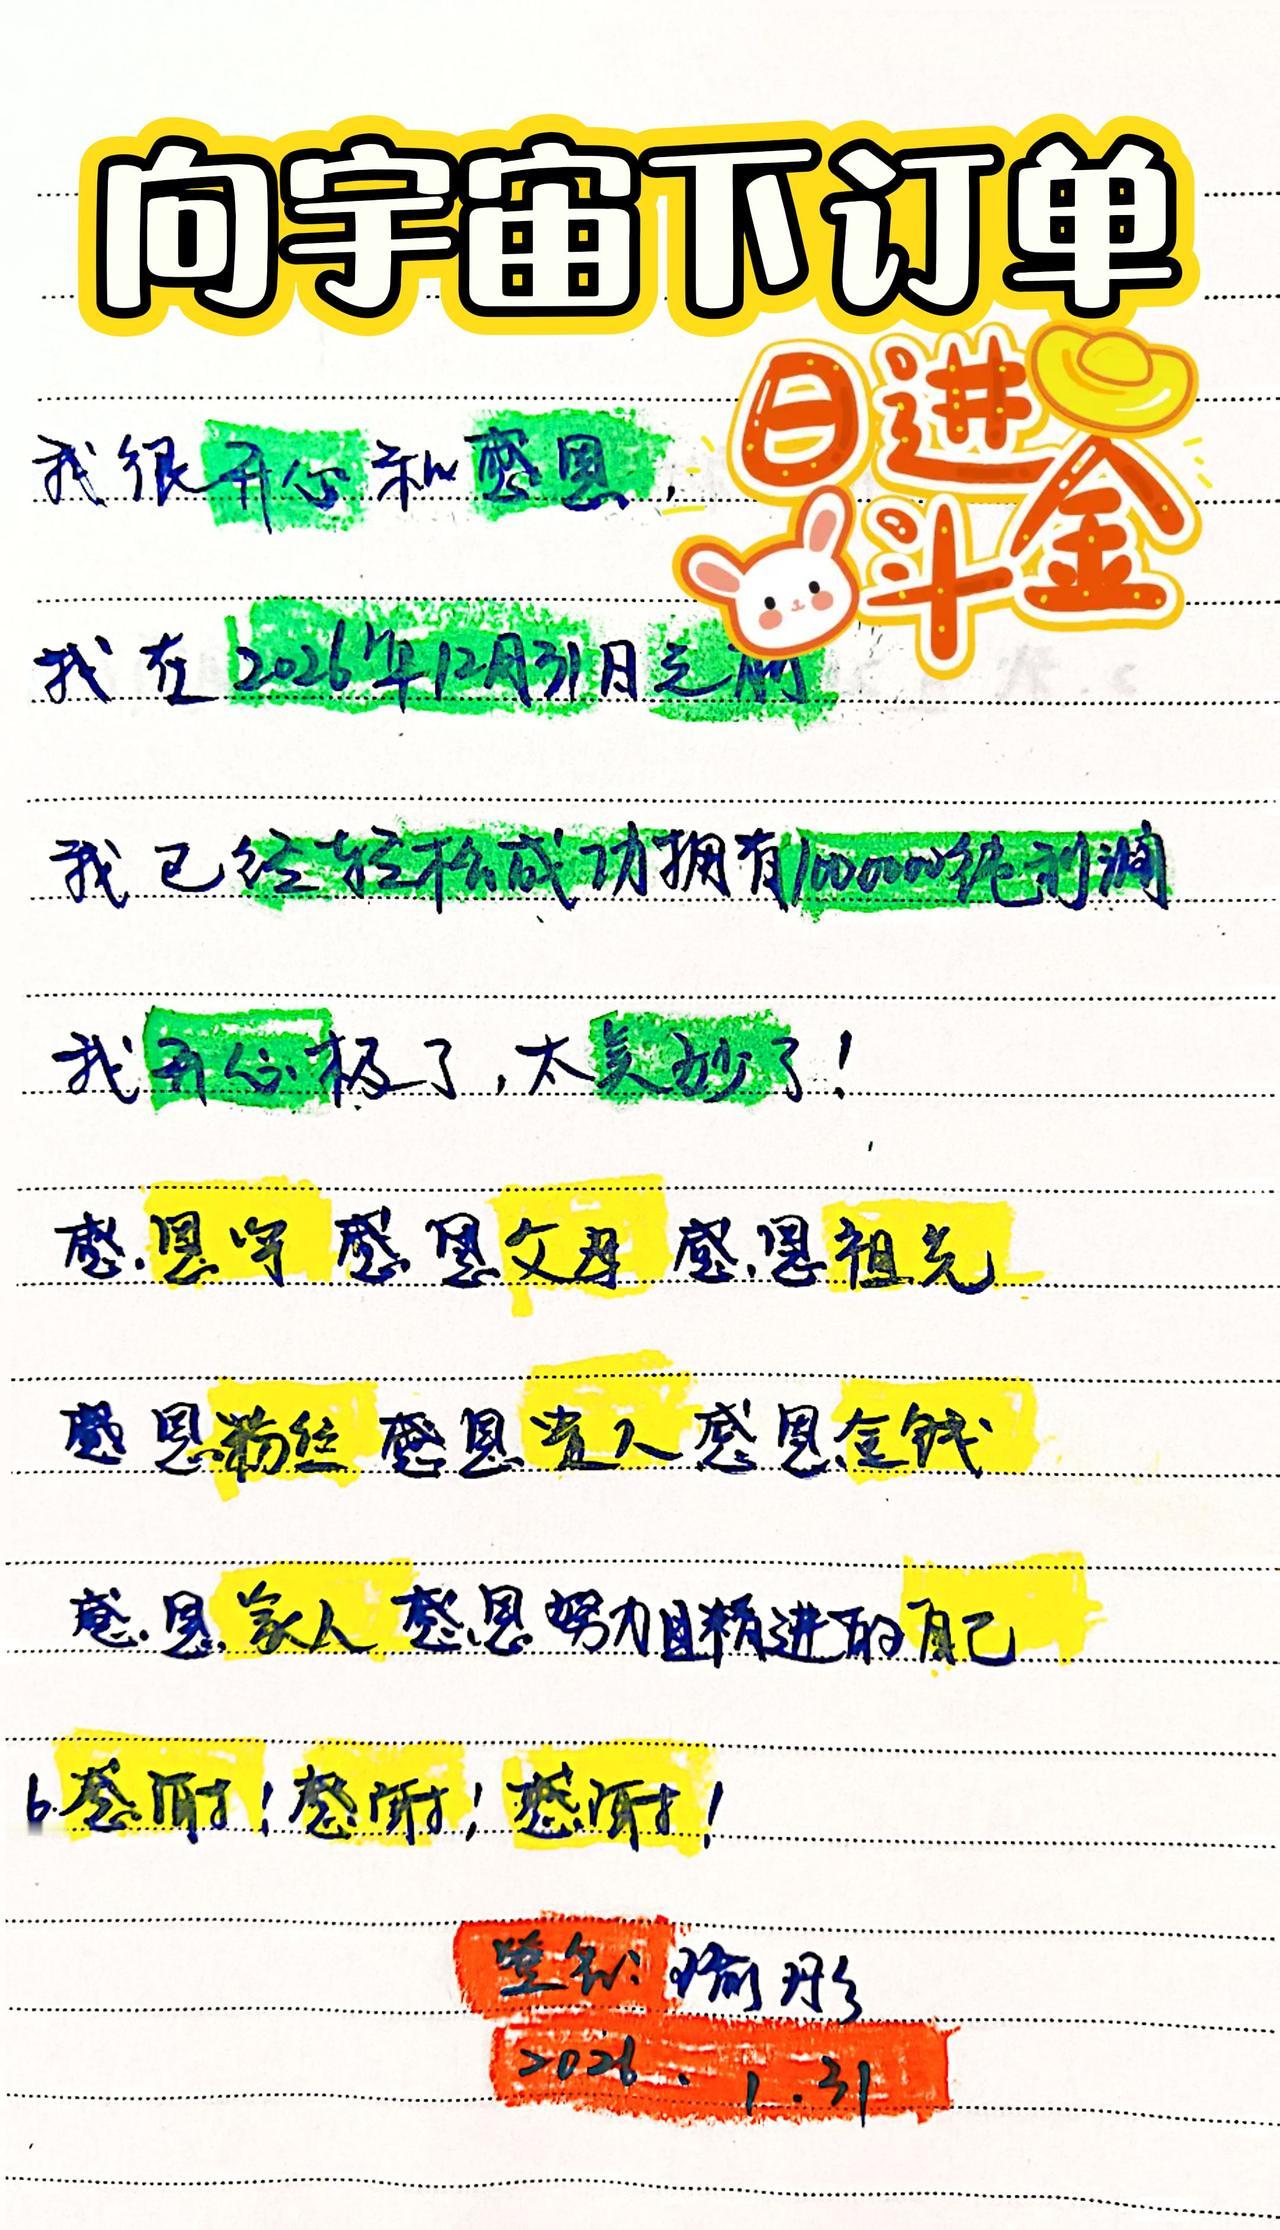 向宇宙下订单
日进
斗金
我很开心和感恩,
我在2026年12月31日之前
我已经轻松成功拥有1000000纯利润
我开心极了,太美妙了!
感恩宇 感恩父母 感恩祖先
感恩粉丝 感恩贵人 感恩金钱
感恩家人 感恩努力且精进的自己
6.感谢!感谢!感谢!
签名: 瑜彤
2026.1.31